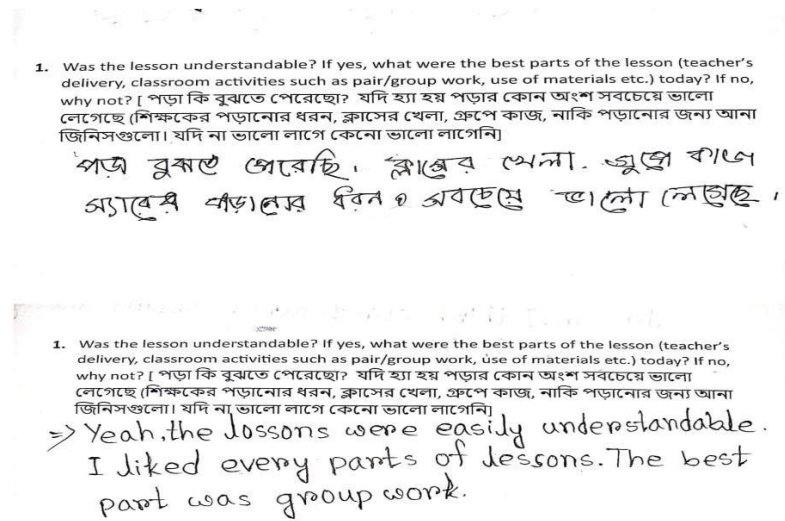 1. Was the lesson understandable? If yes, what were the best parts of the lesson (teacher's
delivery, classroom activities such as pair/group work, use of materials etc.) today? If no,
why not? [ পড়া কি বুঝতে পেরেছো? যদি হ্যা হয় পড়ার কোন অংশ সবচেয়ে ভালো
লেগেছে (শিক্ষকের পড়ানোর ধরন, ক্লাসের খেলা, গ্রুপে কাজ, নাকি পড়ানোর জন্য আনা
জিনিসগুলো। যদি না ভালো লাগে কেনো ভালো লাগেনি]
পড়া বুঝতে পেরেছি। ক্লাসের খেলা. গ্রুপে কাজ
স্যারের পড়ানোর ধরন ও সবচেয়ে ভালো লেগেছে।
1. Was the lesson understandable? If yes, what were the best parts of the lesson (teacher's
delivery, classroom activities such as pair/group work, use of materials etc.) today? If no,
why not? [ পড়া কি বুঝতে পেরেছো? যদি হ্যা হয় পড়ার কোন অংশ সবচেয়ে ভালো
লেগেছে (শিক্ষকের পড়ানোর ধরন, ক্লাসের খেলা, গ্রুপে কাজ, নাকি পড়ানোর জন্য আনা
জিনিসগুলো। যদি না ভালো লাগে কেনো ভালো লাগেনি]
=> Yeah, the lossons were easily understandable.
I liked every parts of lessons. The best
part was group work.